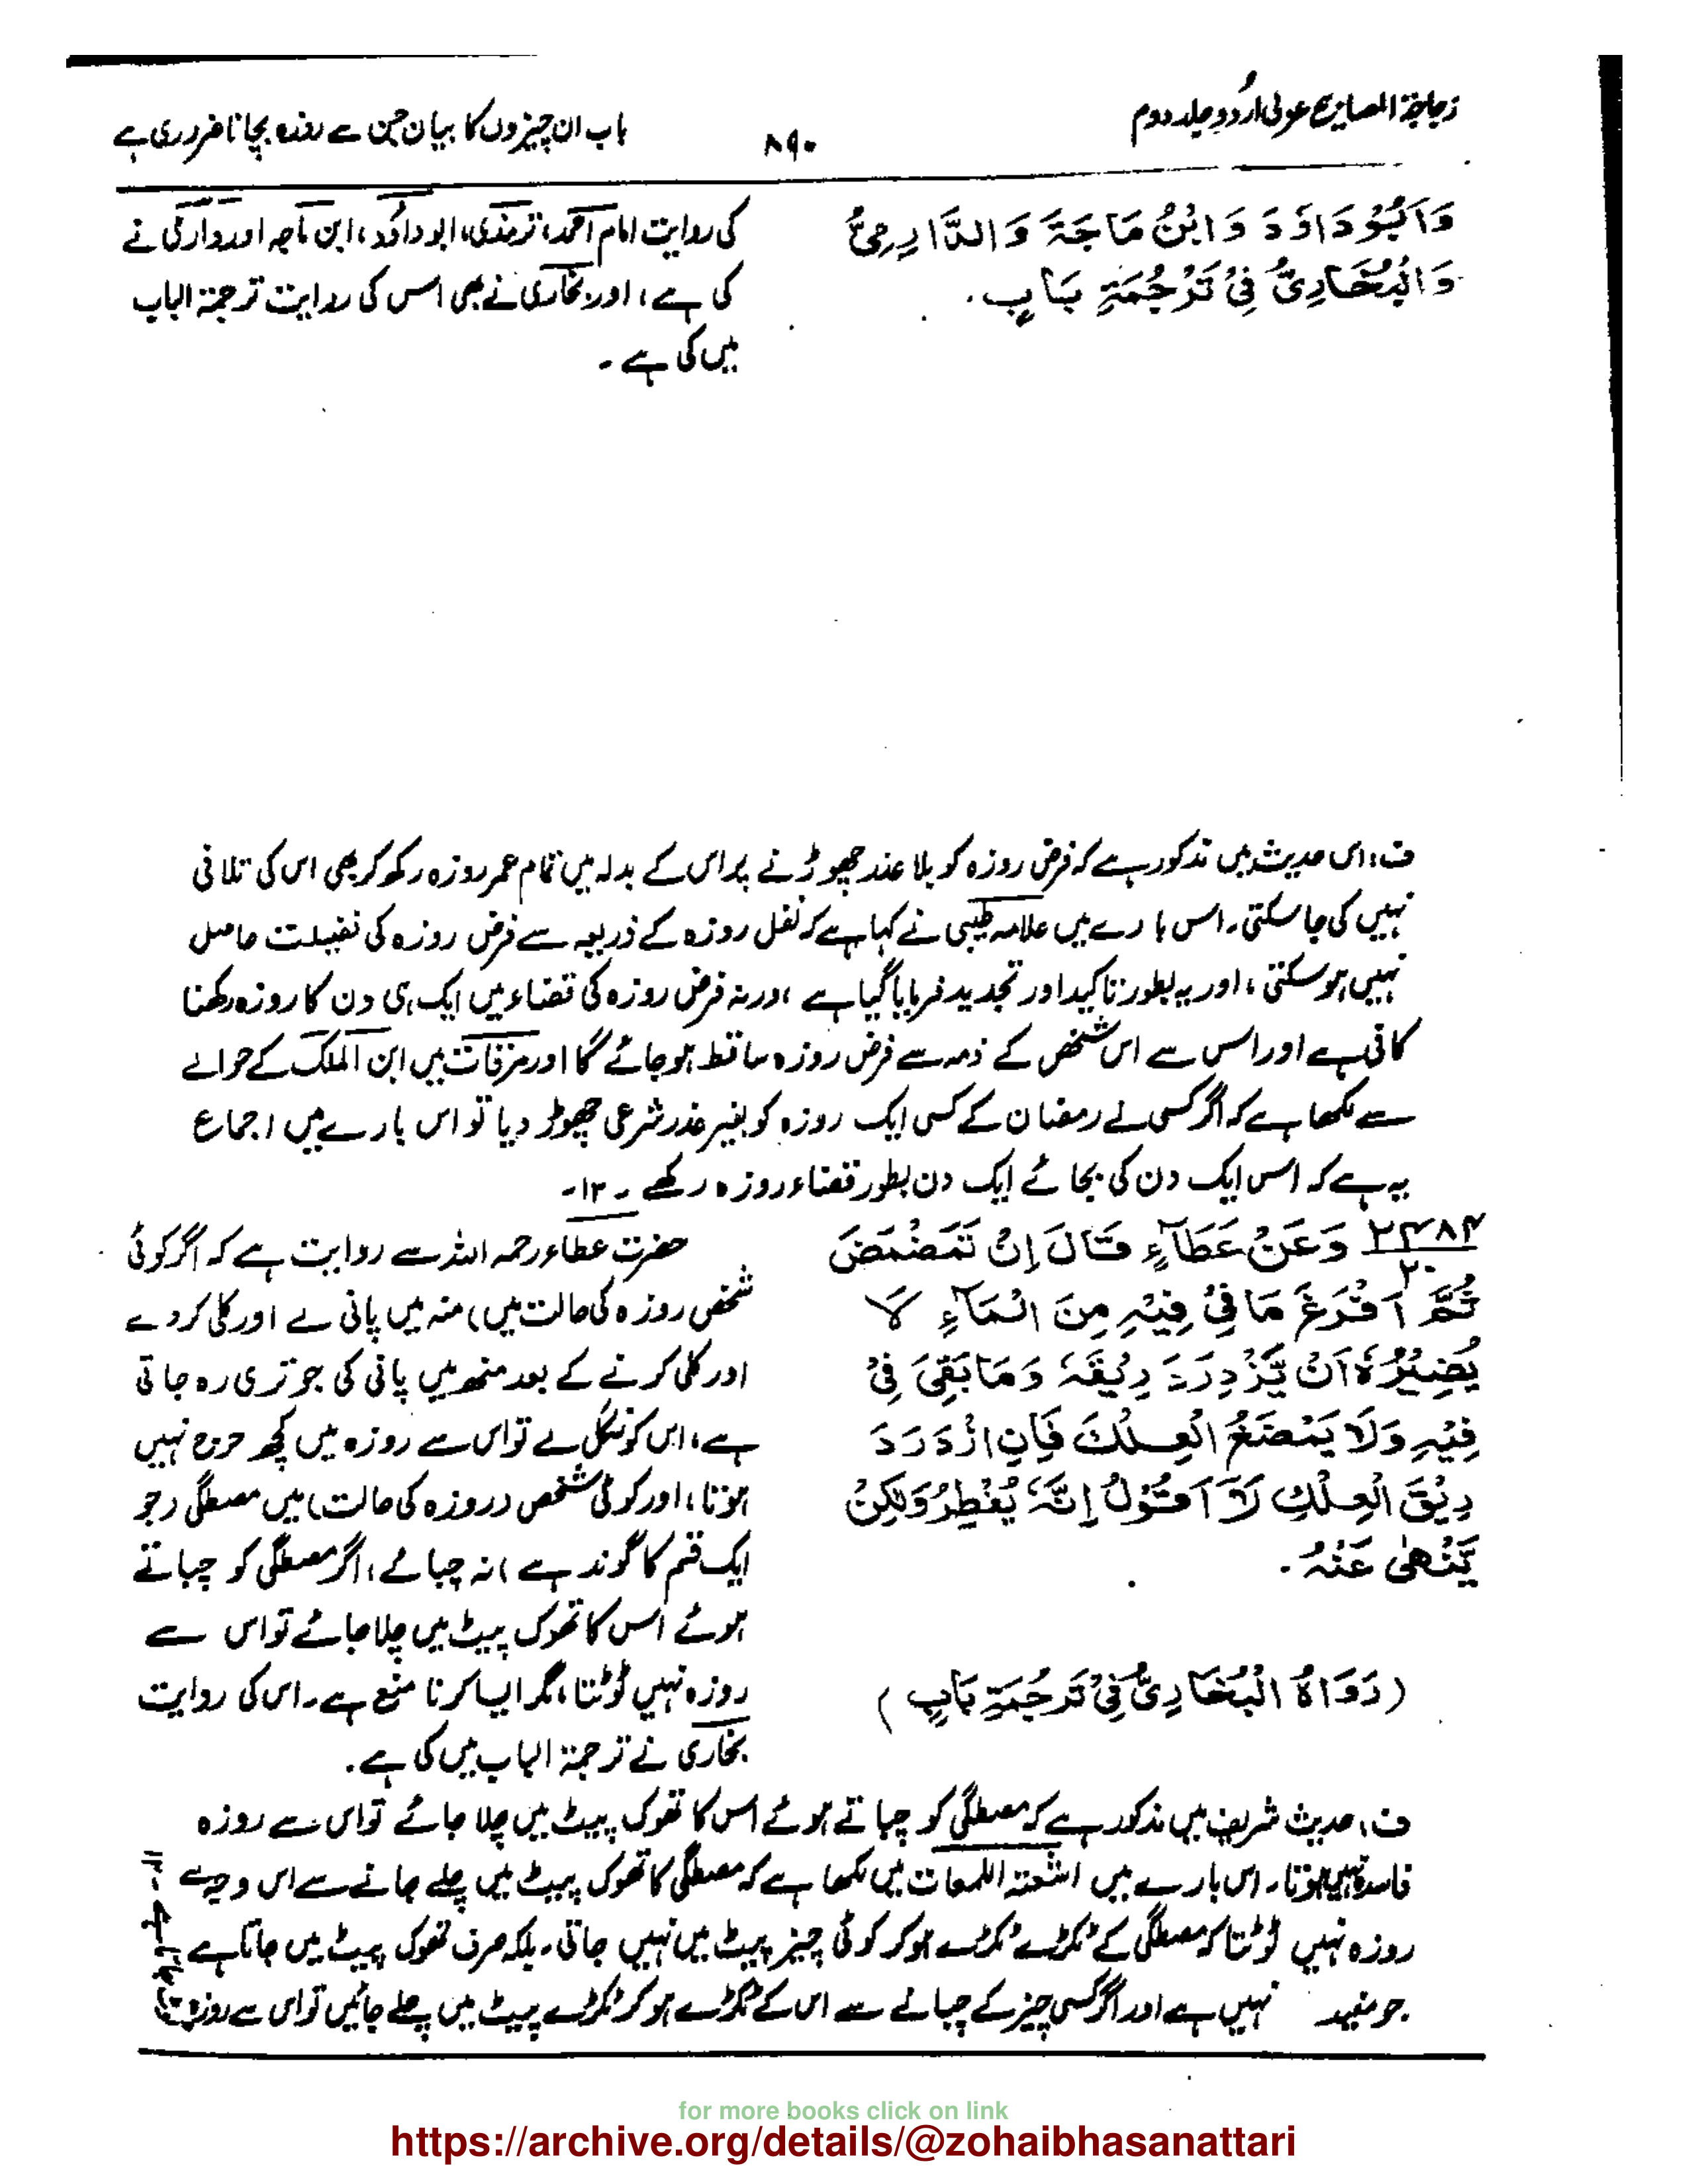 زجاجۃ المصابیح عربی اردو جلد دوم
۸۹۰
باب ان چیزوں کا بیان جن سے روزہ بچانا ضروری ہے
وَاَبُوْدَاوٗدَ وَابْنُ مَاجَۃَ وَالدَّارِمِیُّ
وَالْبُخَارِیُّ فِیْ تَرْجُمَۃِ بَابٍ.
کی روایت امام احمد، ترمذی، ابوداؤد، ابن ماجہ اور دارمی نے
کی ہے، اور بخاری نے بھی اس کی روایت ترجمۃ الباب
میں کی ہے ۔
ف: اس حدیث میں مذکور ہے کہ فرض روزہ کو بلا عذر چھوڑنے پر اس کے بدلہ میں تمام عمر روزہ رکھ کر بھی اس کی تلافی
نہیں کی جا سکتی۔ اس بارے میں علامہ طیبی نے کہا ہے کہ نفل روزہ کے ذریعہ سے فرض روزہ کی فضیلت حاصل
نہیں ہو سکتی، اور یہ بطور تاکید اور تجدید فرمایا گیا ہے، ورنہ فرض روزہ کی قضاء میں ایک ہی دن کا روزہ رکھنا
کافی ہے اور اس سے اس شخص کے ذمہ سے فرض روزہ ساقط ہو جائے گا اور مرقات میں ابن الملک کے حوالے
سے لکھا ہے کہ اگر کسی نے رمضان کے کسی ایک روزہ کو بغیر عذر شرعی چھوڑ دیا تو اس بارے میں اجماع
یہ ہے کہ اس ایک دن کی بجائے ایک دن بطور قضاء روزہ رکھے ۔ ۱۲۔
۲۴۸۴ وَعَنْ عَطَآءٍ قَالَ اِنْ تَمَضْمَضَ
۲۰
ثُمَّ اَفْرَغَ مَا فِیْ فِیْہِ مِنَ الْمَآءِ لَا
یُضِیْرُہٗ اَنْ یَّزْدَرِدَ رِیْقَہٗ وَمَا بَقِیَ فِیْ
فِیْہِ وَلَا یَمْضَغُ الْعِلْکَ فَاِنِ ازْدَرَدَ
رِیْقَ الْعِلْکِ لَا اَقُوْلُ اِنَّہٗ یُفْطِرُ وَلٰکِنْ
یَّنْھٰی عَنْہُ۔
(رَوَاہُ الْبُخَارِیُّ فِیْ تَرْجُمَۃِ بَابٍ)
حضرت عطاء رحمہ اللہ سے روایت ہے کہ اگر کوئی
شخص روزہ کی حالت میں) منہ میں پانی لے اور کلی کر دے
اور کلی کرنے کے بعد منھ میں پانی کی جو تری رہ جاتی
ہے، اس کو نگل لے تو اس سے روزہ میں کچھ حرج نہیں
ہوتا، اور کوئی شخص (روزہ کی حالت) میں مصطگی (جو
ایک قسم کا گوند ہے) نہ چبائے، اگر مصطگی کو چباتے
ہوئے اس کا تھوک پیٹ میں چلا جائے تو اس سے
روزہ نہیں ٹوٹتا، مگر ایسا کرنا منع ہے۔ اس کی روایت
بخاری نے ترجمۃ الباب میں کی ہے.
ف: حدیث شریف میں مذکور ہے کہ مصطگی کو چباتے ہوئے اس کا تھوک پیٹ میں چلا جائے تو اس سے روزہ
فاسد نہیں ہوتا۔ اس بارے میں اشعۃ اللمعات میں لکھا ہے کہ مصطگی کا تھوک پیٹ میں چلے جانے سے اس وجہ سے
روزہ نہیں ٹوٹتا کہ مصطگی کے ٹکڑے ٹکڑے ہو کر کوئی چیز پیٹ میں نہیں جاتی۔ بلکہ صرف تھوک پیٹ میں جاتا ہے
جو مفید نہیں ہے اور اگر کسی چیز کے چبانے سے اس کے ٹکڑے ہو کر ٹکڑے پیٹ میں چلے جائیں تو اس سے روزہ
for more books click on link
https://archive.org/details/@zohaibhasanattari